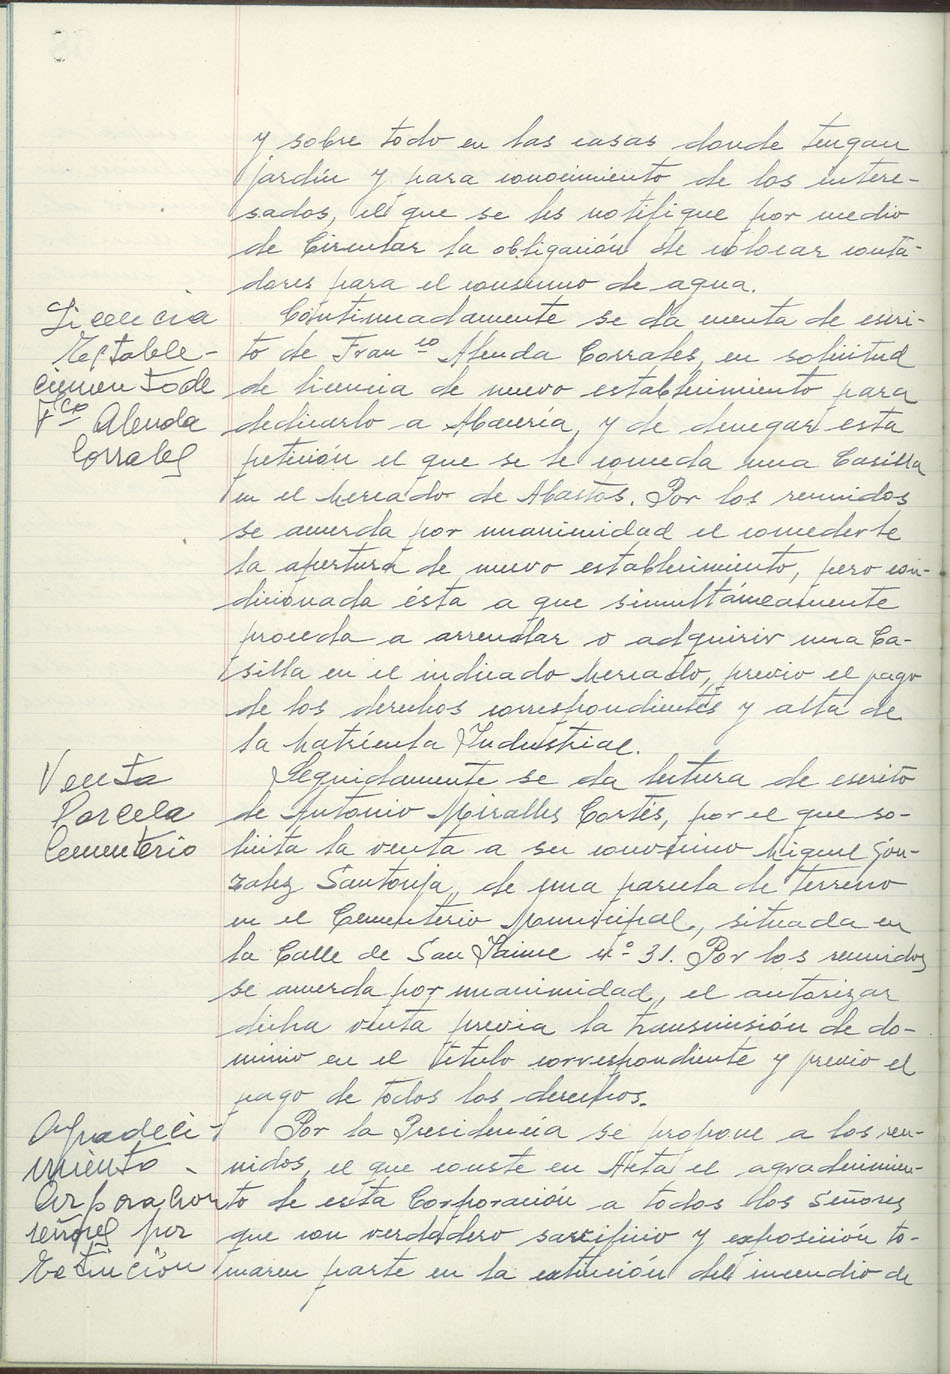 y sobre todo en las casas donde tengan
jardín y para conocimiento de los intere-
sados, el que se les notifique por medio
de Circular la obligación de colocar conta-
dores para el consumo de agua.
Licencia
Estable-
cimiento de
Fco Alenda
Corrales
Continuadamente se da cuenta de escri-
to de Franco Alenda Corrales, en solicitud
de licencia de nuevo establecimiento para
dedicarlo a Abacería, y de denegar esta
petición el que se le conceda una Casilla
en el Mercado de Abastos. Por los reunidos
se acuerda por unanimidad el concederle
la apertura de nuevo establecimiento, pero con-
dicionada ésta a que simultáneamente
proceda a arrendar o adquirir una Ca-
silla en el indicado Mercado, previo el pago
de los derechos correspondientes y alta de
la Matrícula Industrial.
Venta
Parcela
Cementerio
Seguidamente se da lectura de escrito
de Antonio Miralles Cortés, por el que so-
licita la venta a su convecino Miguel Gon-
zalez Santonja, de una parcela de terreno
en el Cementerio Municipal, situada en
la Calle de San Jaime nº 31. Por los reunidos
se acuerda por unanimidad, el autorizar
dicha venta previa la transmisión de do-
minio en el Título correspondiente y previo el
pago de todos los derechos.
Agradeci-
miento
Corporación
señores por
Extinción
Por la Presidencia se propone a los reu-
nidos, el que conste en Acta el agradecimien-
to de esta Corporación a todos los Señores
que con verdadero sacrificio y exposición to-
maron parte en la extinción del incendio de